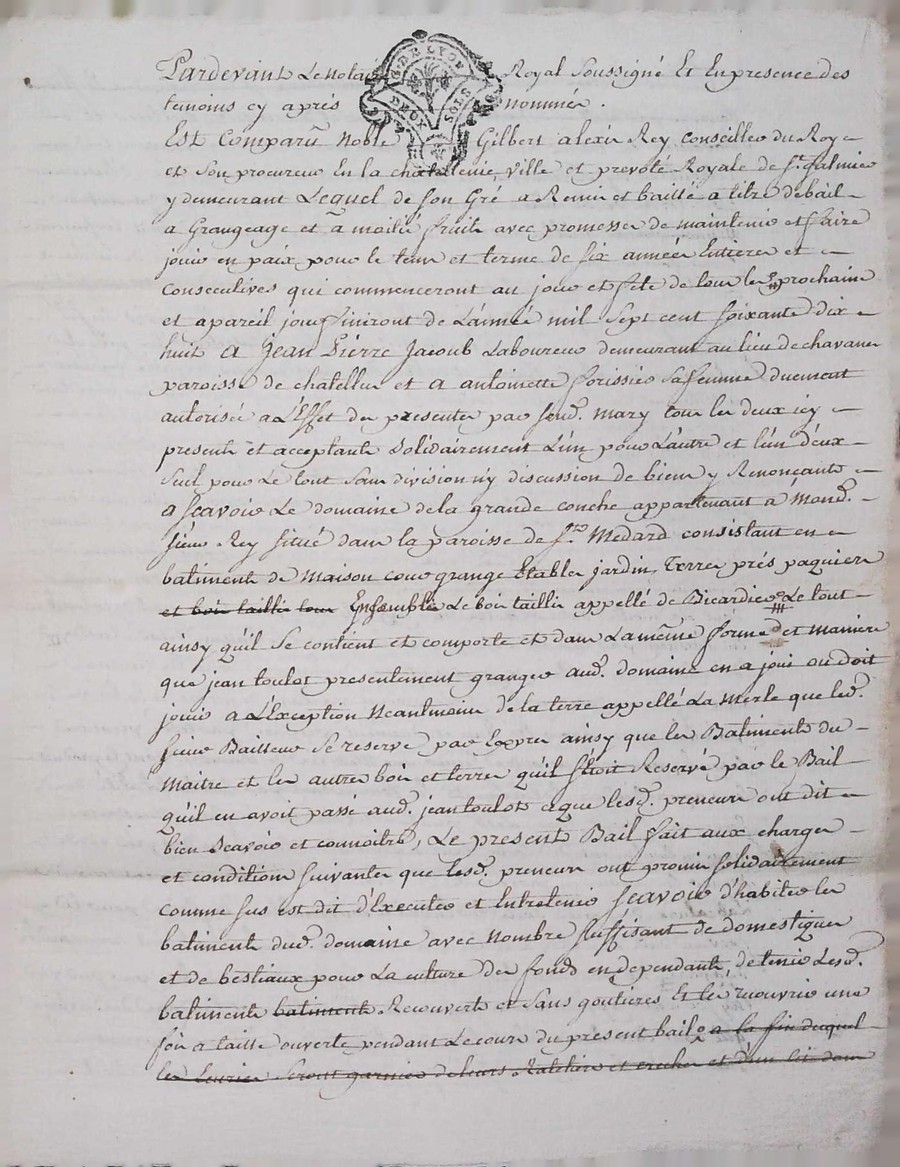 Pardevant Le Notai Royal Soussigné Et En presence des
temoins cy aprés nommés .
G. DE LYON
DEUX SOLS
Est Comparû Noble Gilbert alexis Rey conseiller du Roy
et Son procureur En la chatellenie, ville et prevoté Royale de St. Galmier
y demeurant Lequel de son Gré a Remis et baillé a titre de bail
a Grangeage et a moitié fruits avec promesse de maintenir et faire
jouir en paix pour le tems et terme de six années Entieres et
consecutives qui commenceront au jour et fete de tous les Sts prochains
et a pareil jour finiront de L'année mil Sept cent soixante dix
huit a Jean Pierre Jacoub Laboureur demeurant au lieu de chavanes
paroisse de chatellus et a antoinette forissier Sa femme duement
autorisée a L'Effet des presentes par send. mary tous les deux icy
presents et acceptants Solidairement L'un pour L'autre et L'un d'eux
Seul pour Le tout Sans division ny discussion de biens y Renonçants
a scavoir Le domaine de la grande conche appartenant a mond.
sieur Rey situé dans la paroisse de St. Medard consistant en
batiments de maison cour grange Etables jardin, Terres prés paquiers
et bois taillis tous Ensemble Le bois taillis appellé de Bicardier Le tout
ainsy qu'il Se contient et comporte et dans La même forme et maniere
que jean toulot presentement granger aud. domaine en a joui ou doit
jouir a L'Exception Neantmoins de la terre appellé La Merle que led.
sieur Bailleur Se reserve par Exprés ainsy que les Batiments du
Maitre et les autres bois et terres qu'il s'étoit Reservé par le Bail
qu'il en avoit passé aud. jean toulot et que lesd. preneurs ont dit
bien Scavoir et connoitre, Le present Bail fait aux charges
et conditions suivantes que lesd. preneurs ont promis solidairement
comme sus est dit d'Executer et Entretenir scavoir d'habiter les
batiments dud. domaine avec Nombre suffisant de domestiques
et de bestiaux pour La culture des fonds en dependants, de tenir Lesd.
batiments batiments Recouverts et Sans goutieres Et les recouvrir une
fois a taille ouverte pendant Le cours du present bail a la fin duquel
les Ecuries Seront garnies de leurs Rateliers et creches et d'un lit dans